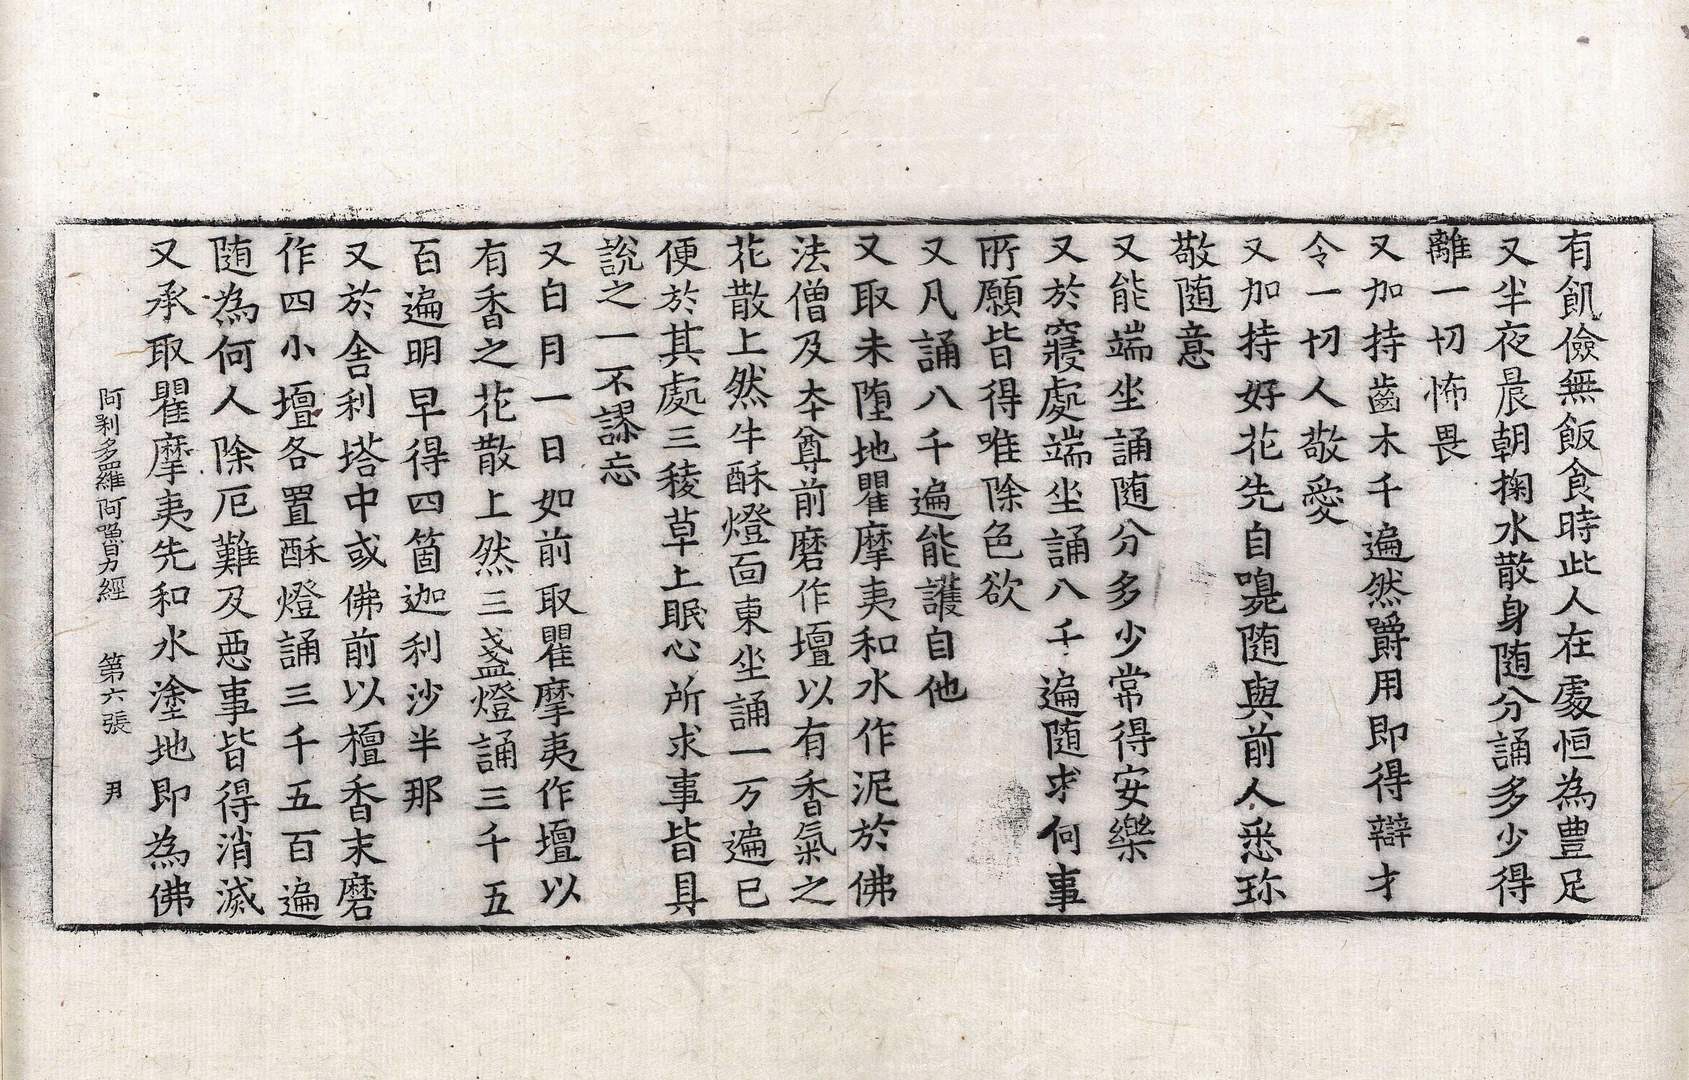 有飢儉無飯食時此人在處恒為豊足
又半夜晨朝掬水散身随分誦多少得
離一切怖畏
又加持齒木千遍然嚼用即得辯才
令一切人敬愛
又加持好花先自嗅随與前人悉珎
敬随意
又能端坐誦随分多少常得安樂
又於寢處端坐誦八千遍随求何事
所願皆得唯除色欲
又凡誦八千遍能護自他
又取未堕地瞿摩夷和水作泥於佛
法僧及夲尊前磨作壇以有香氣之
花散上然牛酥燈面東坐誦一万遍已
便於其處三稜草上眠心所求事皆具
說之一不謬忘
又白月一日如前取瞿摩夷作壇以
有香之花散上然三盞燈誦三千五
百遍明早得四箇迦利沙半那
又於舍利塔中或佛前以檀香末磨
作四小壇各置酥燈誦三千五百遍
随為何人除厄難及惡事皆得消滅
又承取瞿摩夷先和水塗地即為佛
阿剎多羅阿嚕力經 第六張 尹